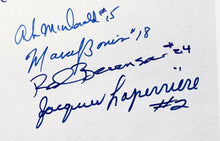 Ab McDonald #15
Marcel Bonin #18
Red Berenson #24
Jacques Laperrière
#2